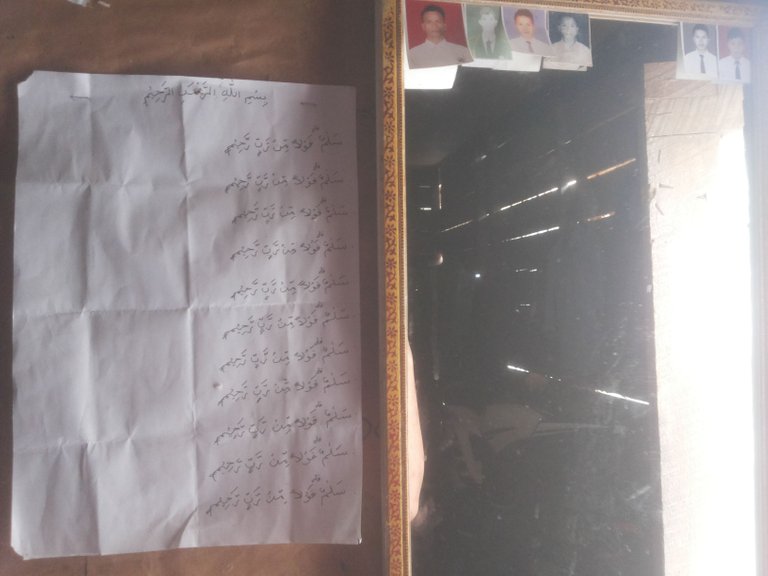 بِسْمِ اللّٰهِ الرَّحْمٰنِ الرَّحِيْمِ
سَلٰمٌ ۗ قَوْلًا مِّنْ رَّبٍّ رَّحِيْمٍ
سَلٰمٌ ۗ قَوْلًا مِّنْ رَّبٍّ رَّحِيْمٍ
سَلٰمٌ ۗ قَوْلًا مِّنْ رَّبٍّ رَّحِيْمٍ
سَلٰمٌ ۗ قَوْلًا مِّنْ رَّبٍّ رَّحِيْمٍ
سَلٰمٌ ۗ قَوْلًا مِّنْ رَّبٍّ رَّحِيْمٍ
سَلٰمٌ ۗ قَوْلًا مِّنْ رَّبٍّ رَّحِيْمٍ
سَلٰمٌ ۗ قَوْلًا مِّنْ رَّبٍّ رَّحِيْمٍ
سَلٰمٌ ۗ قَوْلًا مِّنْ رَّبٍّ رَّحِيْمٍ
سَلٰمٌ ۗ قَوْلًا مِّنْ رَّبٍّ رَّحِيْمٍ
سَلٰمٌ ۗ قَوْلًا مِّنْ رَّبٍّ رَّحِيْمٍ
سَلٰمٌ ۗ قَوْلًا مِّنْ رَّبٍّ رَّحِيْمٍ